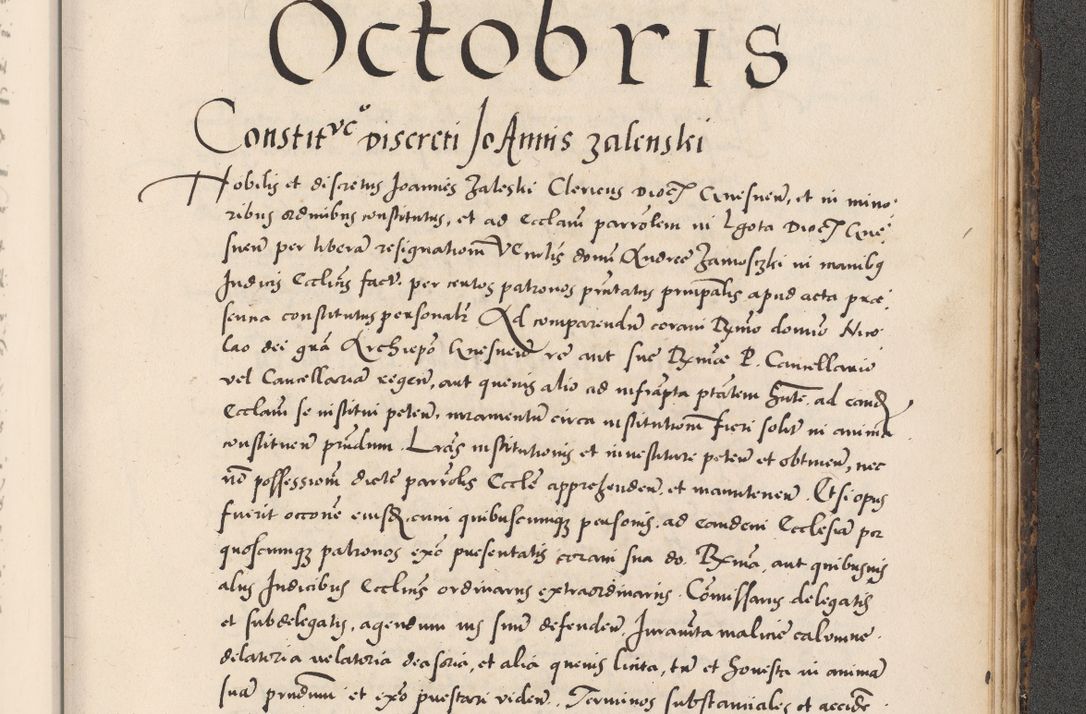 Octobris
Constitᵛᶜᵒ discreti Joannis Zalenski
Nobilis et discretus Joannes Zaleski Clericus Dioc Gnesnen, et in mino
ribus ordinibus constitutus, et ad Eccliam parrolem in Lgota Dioc Gne
snen per liberā resignationem domi Andree Zamosczki in manibq
Judicis Ecclins fact. per certos patronos pntatus principalis apud acta præ
senna constitutus personalr Ad comparendū coram Rmo domino Nico
lao dei gra Archiepo Gnesnen re aut sue Rmæ P. Cancellarie
vel Cancellariā regen, aut quenis alio ad infrapta ptatem hnte, ad eand
Eccliam se institui peten, iuramentū circa institutionem fieri solit in animā
constituen pndum. Lras institutionis et investiture peten et obtinen, nec
nō possessionem dicte parrolis Eccle apprehenden, et manutenen. Et si opus
fuerit occōne eiusd, cum quibuscumqz personis, ad eandem Ecclesiā per
quoscumqz patronos exō presentatis coram sua do. Rma, aut quibusuis
aliis Judicibus Ecclins ordinariis extraordinariis. Comissariis delegatis
et subdelegatis, agendum ius suū defenden, Juramta malicie calumne.
delatoria uelatoria deasoria, et alia quenis licita, tn et honesta in animā
suā prndum et exō prestari viden. Terminos substanciales et accide